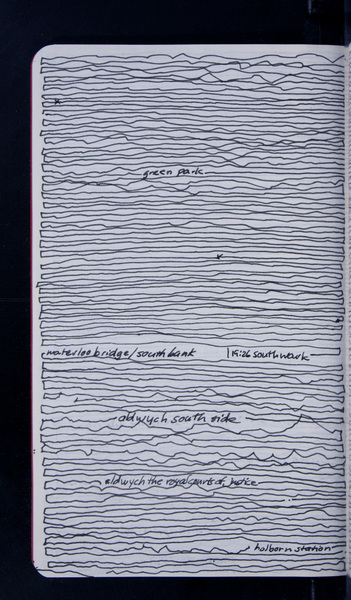 green park
waterloo bridge/south bank 19:26 southwark
aldwych south side
aldwych the royal courts of justice
holborn station